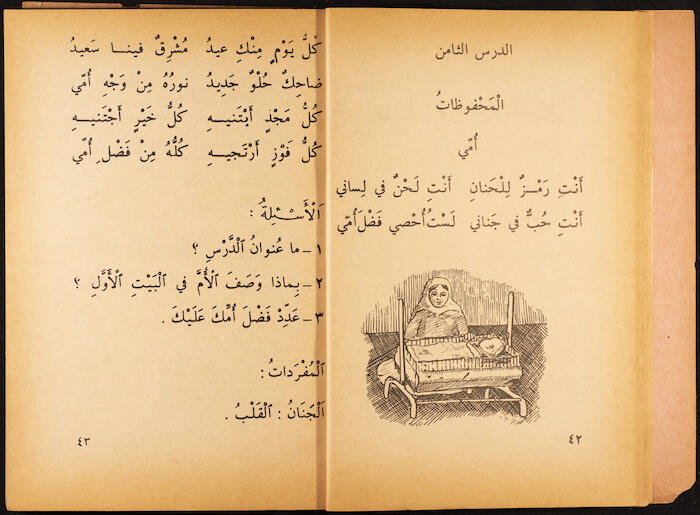 الدرس الثامن
الْمَحْفُوظَاتُ
أُمّي
أَنْتِ رَمْـزٌ لِلْحَنانِ أَنْتِ لَحْنٌ في لِساني
أَنْتِ حُبٌّ في جَناني لَسْتُ أُحْصي فَضْلَ أُمّي
٤٢
كُلُّ يَوْمٍ مِنْكِ عيدُ مُشْرِقٌ فينـا سَعيدُ
ضاحِكٌ حُلْوٌ جَديدُ نورُهُ مِنْ وَجْهِ أُمّي
كُلُّ مَجْدٍ أَبْتَنيـهِ كُلُّ خَيْرٍ أَجْتَنيـهِ
كُلُّ فَوْزٍ أَرْتَجيـهِ كُلُّهُ مِنْ فَضْلِ أُمّي
ٱلْأَسْـئِلَةُ :
١ ـ ما عُنوانُ ٱلدَّرْسِ ؟
٢ ـ بِماذا وَصَفَ ٱلْأُمَّ في ٱلْبَيْتِ ٱلْأَوَّلِ ؟
٣ ـ عَدِّدْ فَضْلَ أُمِّكَ عَلَيْكَ .
ٱلْمُفْرَداتُ :
ٱلْجَنَانُ : ٱلْقَلْبُ .
٤٣